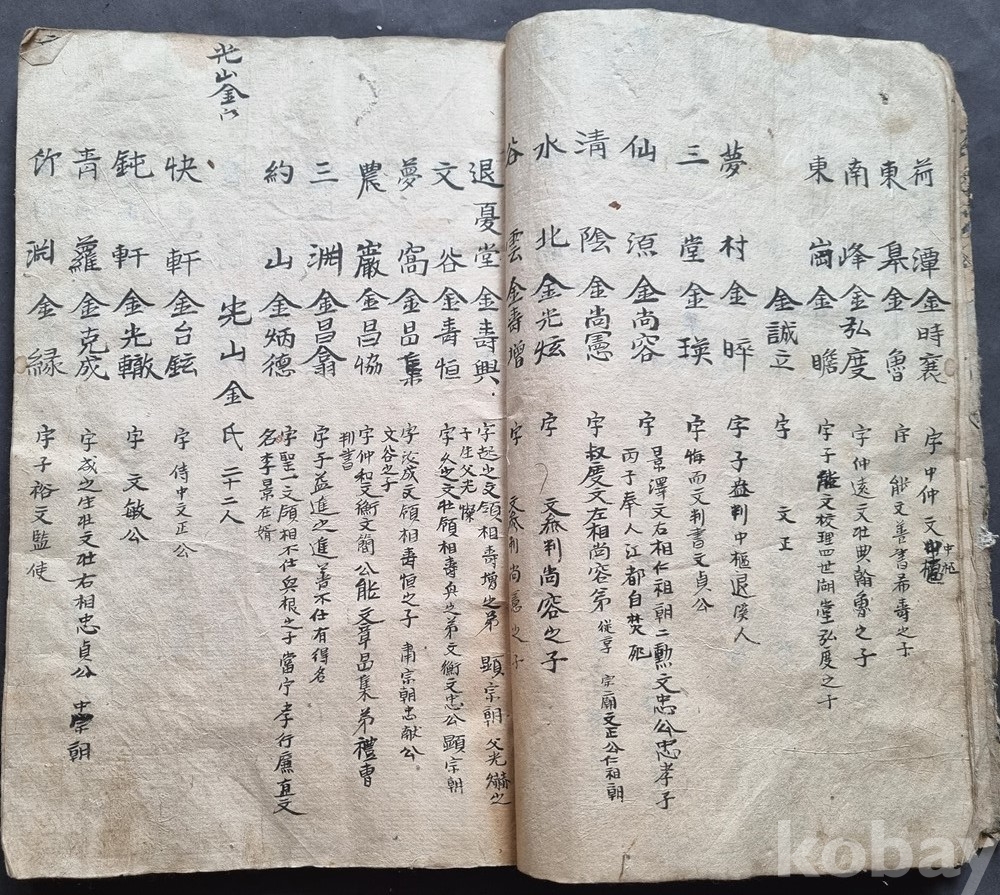 荷潭 金時襄 字中仲 文中樞
東皐 金魯 字 能文善書 希壽之子
南峰 金弘度 字仲遠 文壯典翰 魯之子
東崗 金瞻 字子 文校理 四世湖堂 弘度之子
金誠立 字 文正
夢村 金晬 字子益 判中樞 退溪人
三堂 金瑛 字悔而 文判書 文貞公
仙源 金尚容 字景澤 文右相 仁祖朝二勳 文忠公 忠孝子
丙子奉人江都自焚死
清陰 金尚憲 字叔度 文左相 尚容弟 従享 宗廟 文正公 仁祖朝
水北 金光炫 字 文叅判 尚容之子
谷雲 金壽增 字 文叅判 尚憲之子
退憂堂 金壽興 字起之 文領相 壽增之弟 顯宗朝 父光
子生父光燦
文谷 金壽恒 字久之 文壯 領相 壽興之弟 文衡 文忠公 顯宗朝
夢窩 金昌集 字汝成 文領相 壽恒之子 肅宗朝 忠献公
文谷之子
農巖 金昌協 字仲和 文衡 文簡公 能文章 昌集弟 禮曹
判書
三淵 金昌翕 字子益 進之進善 不仕 有得名
約山 金炳德 字聖一 文領相 不仕 與根之子 當宁 孝行廉直文
名李景在婿
光山金氏 二十二人
光山金
快軒 金台鉉 字 侍中 文正公
鈍軒 金光轍 字 文敏公
青蘿 金克成 字成之 生壯文壯 右相 忠貞公 中宗朝
竹淵 金緣 字子裕 文監使
kobay